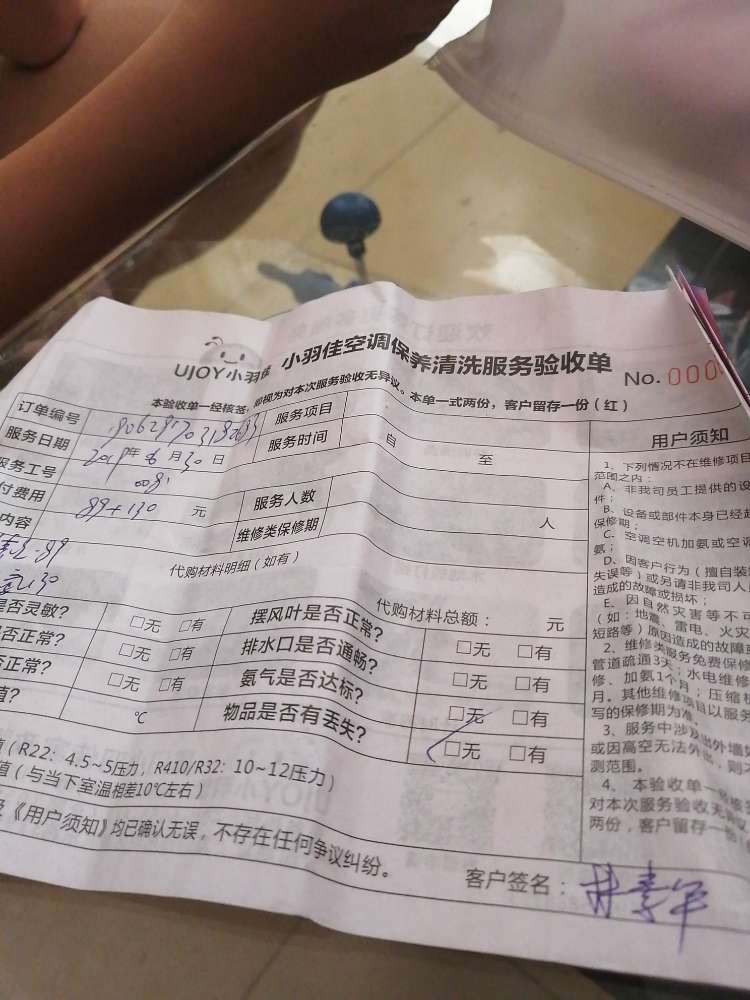 UJOY小羽佳 小羽佳空调保养清洗服务验收单
No. 000
本验收单一经核签，即视为对本次服务验收无异议。本单一式两份，客户留存一份（红）
订单编号 服务项目
服务日期 2019年6月30日 服务时间 自 至
服务工号 0081
付费用 89+130 元 服务人数 人
内容 维修类保修期
代购材料明细（如有） 代购材料总额： 元
是否灵敏？ □无 □有 摆风叶是否正常？ □无 □有
否正常？ □无 □有 排水口是否通畅？ □无 □有
否正常？ □无 □有 氨气是否达标？ □无 □有
值？ ℃ 物品是否有丢失？ □无 □有
值（R22：4.5~5压力，R410/R32：10~12压力）
值（与当下室温相差10℃左右）
《用户须知》均已确认无误，不存在任何争议纠纷。
客户签名：
用户须知
1、下列情况不在维修项目
范围之内：
A、非我司员工提供的设
件；
B、设备或部件本身已经超
保修期；
C、空调空机加氨或空调
氨；
D、因客户行为（擅自装
失误等）或另请非我司人
造成的故障或损坏；
E、因自然灾害等不可
（如：地震、雷电、火灾
短路等）原因造成的故障或
2、维修类服务免费保修
管道疏通3天；水电维修
修、加氨1个月；压缩机
月。其他维修项目以服务
写的保修期为准。
3、服务中涉及出外墙
或因高空无法外出，则不
测范围。
4、本验收单一经核
对本次服务验收无异议
两份，客户留存一